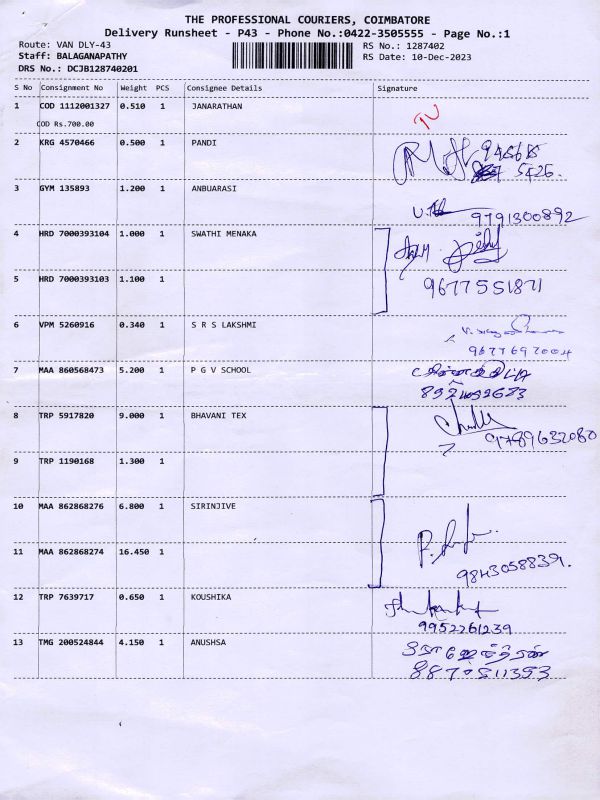 THE PROFESSIONAL COURIERS, COIMBATORE
Delivery Runsheet - P43 - Phone No.:0422-3505555 - Page No.:1
Route: VAN DLY-43 RS No.: 1287402
Staff: BALAGANAPATHY RS Date: 10-Dec-2023
DRS No.: DCJB128740201
S No Consignment No Weight PCS Consignee Details Signature
1 COD 1112001327 0.510 1 JANARATHAN
COD Rs.700.00
2 KRG 4570466 0.500 1 PANDI
3 GYM 135893 1.200 1 ANBUARASI
9791300892
4 HRD 7000393104 1.000 1 SWATHI MENAKA
5 HRD 7000393103 1.100 1 9677551871
6 VPM 5260916 0.340 1 S R S LAKSHMI
7 MAA 860568473 5.200 1 P G V SCHOOL
8 TRP 5917820 9.000 1 BHAVANI TEX
9789632080
9 TRP 1190168 1.300 1
10 MAA 862868276 6.800 1 SIRINJIVE
11 MAA 862868274 16.450 1
9843058839.
12 TRP 7639717 0.650 1 KOUSHIKA
9952261239
13 TMG 200524844 4.150 1 ANUSHSA